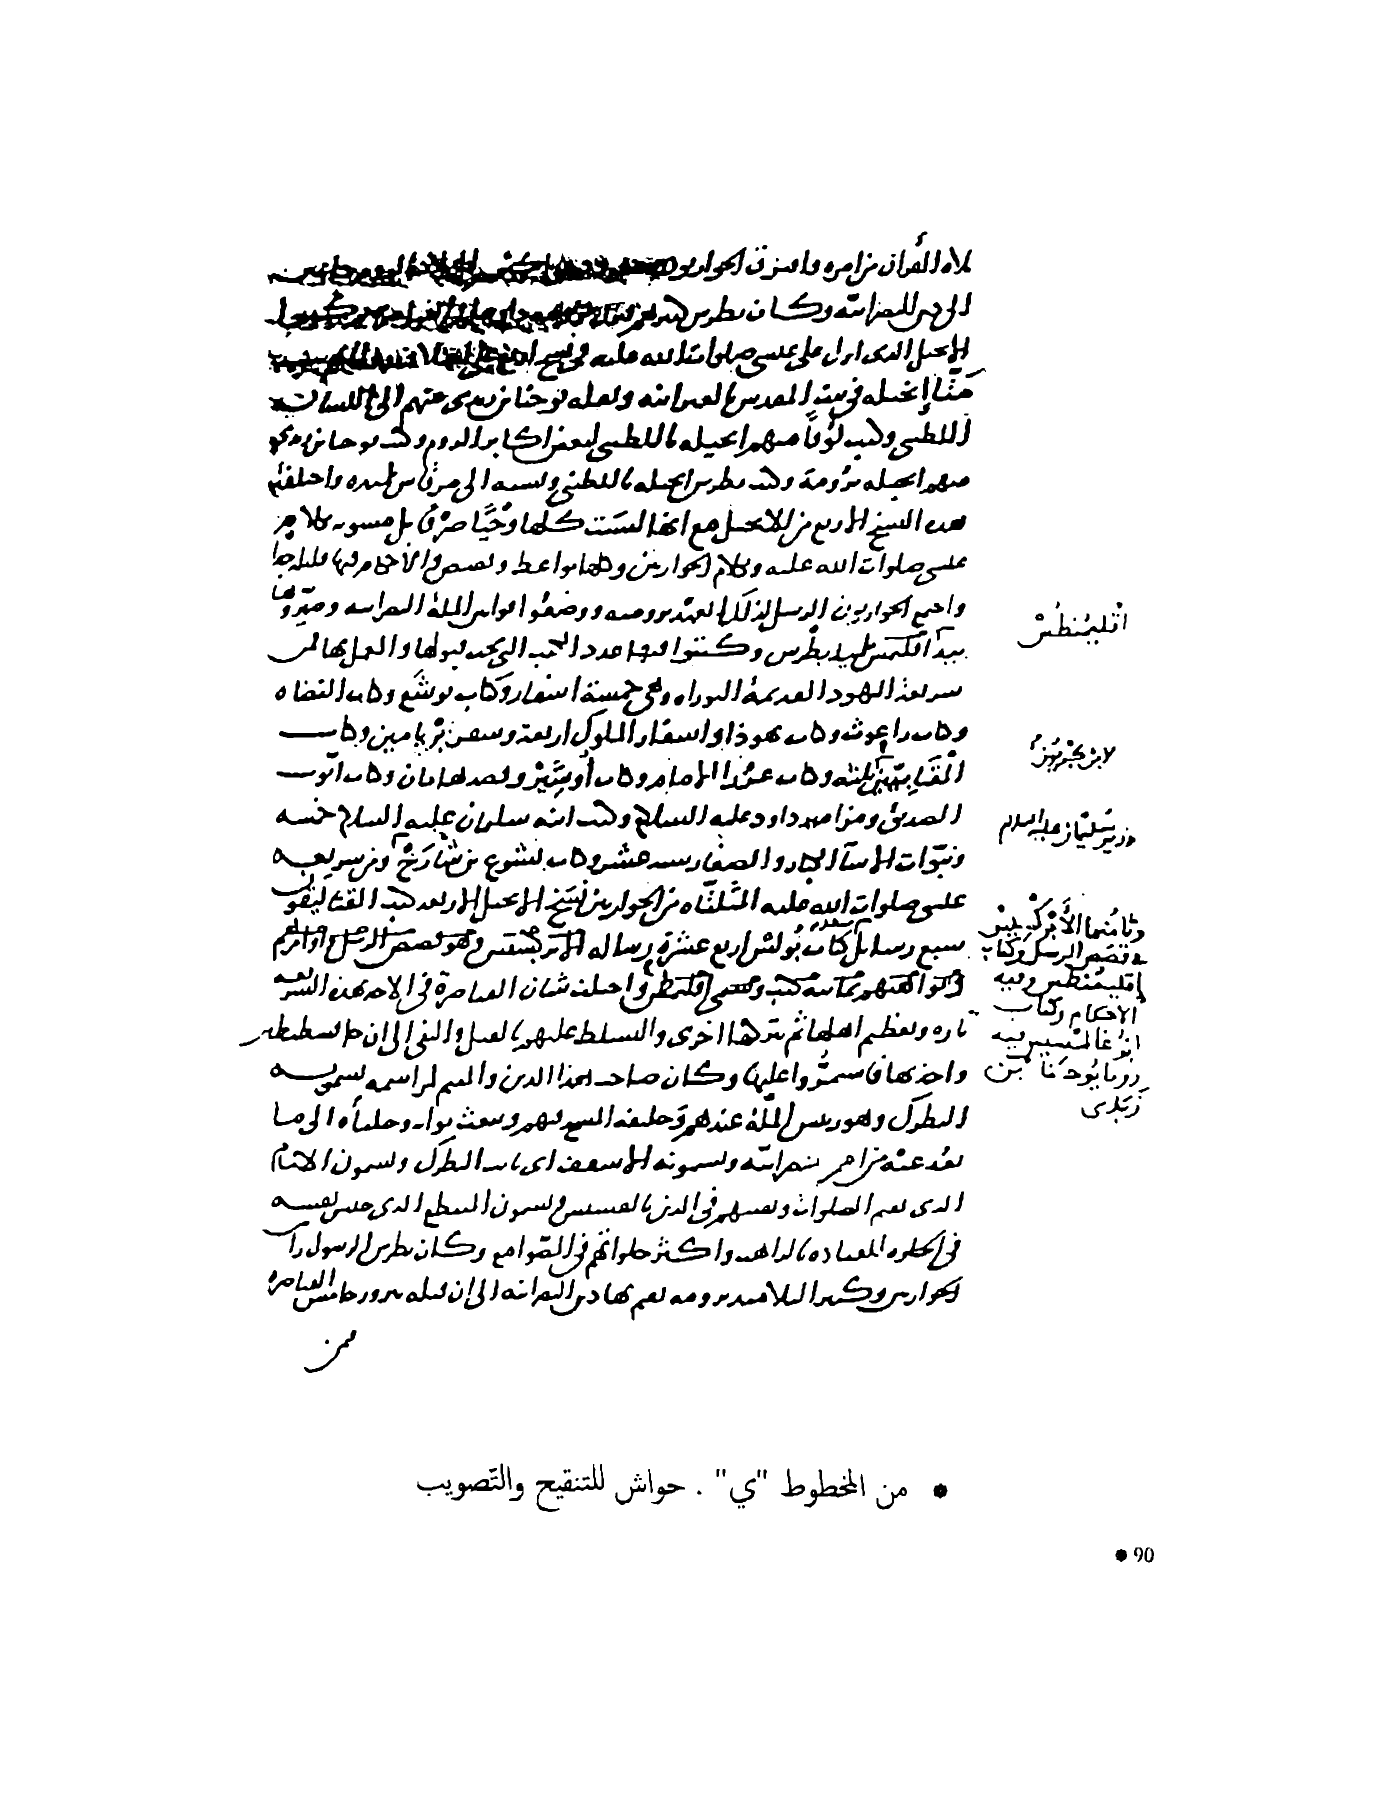 تلاه القرآن مزامره وافترق الحواريون
الى دين النصرانية وكان بطرس كبيرهم
الانجيل الذي انزل على عيسى صلوات الله عليه في نسخ اربع
متَّا إنجيله في بيت المقدس بالعبرانية ونقله يوحنا بن زبدى منهم الى اللسان
اللطيني وكتب لُوقا منهم انجيله باللطيني لبعض اكابر الروم وكتب يوحنا بن زبدى
منهم انجيله برُومة وكتب بطرس انجيله باللطيني ونسبه الى مرقاس تلميذه واختلفت
هذه النسخ الاربع من الانجيل مع انها ليست كلها وَحْيًا صرْفا بل مشوبه بكلام
عيسى صلوات الله عليه وبكلام الحواريين وكلها مواعظ وقصص والأحكام فيها قليله جدا
واجتمع الحواريون الرسل لذلك العهد برومه ووضعوا قوانين الملة النصرانيه وصيّروها
بيد اقليمنطس تلميذ بطرس وكتبوا فيها عدد الكتب التي يجب قبولها والعمل بها فمن
شريعة اليهود القديمة التوراه وهي خمسة اسفار وكتاب يوشَع وكتاب القضاه
وكتاب راعوث وكتاب يهوذا واسفار الملوك اربعة وسفر بنْيامين وكتاب
الْمقَابِيّين ثلثه وكتاب عزْرا الامام وكتاب أوشِيْر وقصه هامان وكتاب ايّوب
الصديق ومزامير داود عليه السلام وكتب ابنه سليمان عليه السلام خمسه
ونبوّات الانبيآ الكبار والصغار سته عشر وكتاب يشوع بن شَارَخْ ومن شريعه
عيسى صلوات الله عليه المُتَلقَّاه من الحواريين نُسَخ الانجيل الاربعه كتب القتاليقون
سبع رسايل كتاب بُولُس اربع عشرة رساله
واختلف شان القياصرة في الاخذ بهذه الشريعه
تاره وتعظيم اهلها ثم تركها اخرى والتسلط عليهم بالقتل والنفي الى ان جا قسطنطين
واخذ بها فاستمرُّوا عليها وكان صاحب هذا الدين والمقيم لمراسمه يسمونه
البطرك وهو ريس المِلّة عندهم وخليفه المسيح فيهم ويبعث نوابه وخلفاه الى ما
بعُد عنه من امم النصرانيّه ويسمونه الاسقف اي نايب البطرك ويسمون الامام
الذي يقيم الصلوات ويفتيهم في الدين بالقسيس ويسمون المنقطع الذي حبس نفسه
في الخلوه للعباده بالراهب واكثر خلواتهم في الصّوامع وكان بطرس الرسول راس
الحواريين وكبير التلاميذ برومه يقيم بها دين النصرانيه الى ان قتله نيرون خامس القياصرة
فمن
اقليمُنطُسْ
لابن كِرْيُون
وزير سُليْمان عليه السلام
وثامُنها الأبْركْسِيس
في قصص الرسل وكتاب
إقليمُنْطس وفيه
الاحكام وكتاب
ابُو غالمْسيس فيه
رويا يُوحَنا بن
زبَدى
• من المخطوط "ي" . حواش للتنقيح والتّصويب
90 •